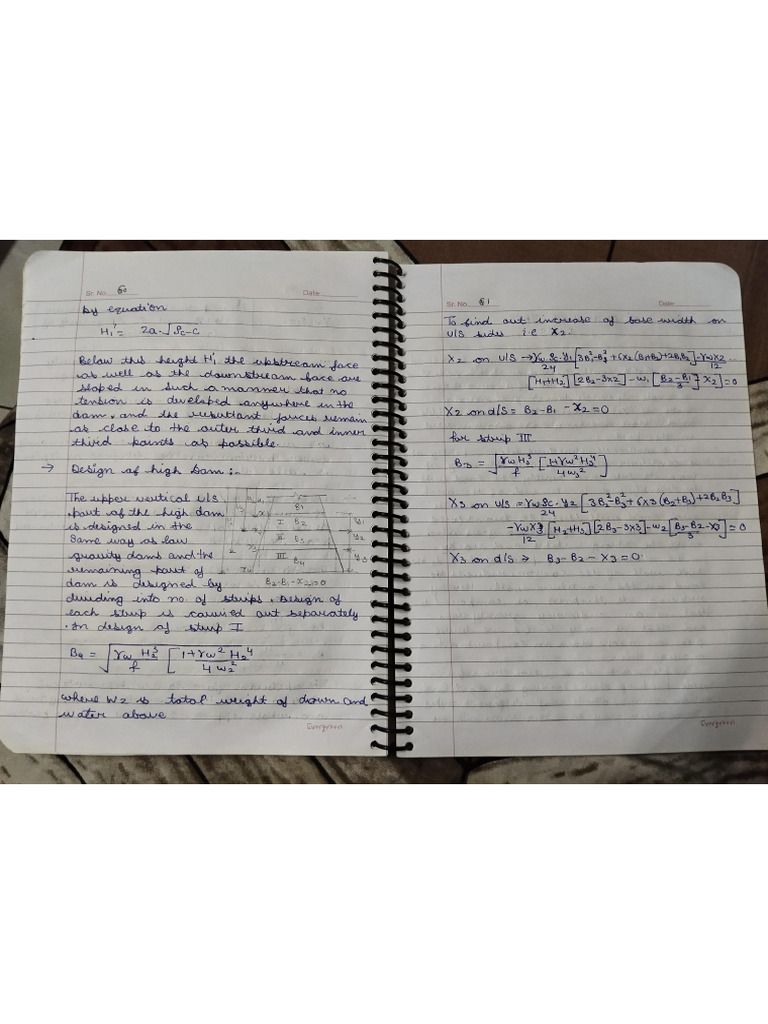 Sr. No. 60 Date
by equation
H₁' = 2a.√Sc-c
Below this height H'₁ the upstream face
as well as the downstream face are
sloped in such a manner that no
tension is developed anywhere in the
dam, and the resultant forces remain
as close to the outer third and inner
third points as possible.
→ Design of high Dam :-
The upper vertical u/s
part of the high dam
is designed in the
same way as low
gravity dams and the
remaining part of
dam is designed by
dividing into no. of strips. Design of
each strip is carried out separately
. In design of strip I
B₁
I B₂ y₁
II B₃ y₂
III B₄ y₃
B₂-B₁-x₂=0
B₄ = √γw H₂³/f [1+γw² H₂⁴/4w₂²]
where W2 is total weight of down and
water above
Evergreen
Sr. No. 61 Date
To find out increase of base width on
U/S sides i.e X₂.
X₂ on U/S → γw.Sc.y₁/24 [3B₁²-B₂²+6x₂(B₁+B₂)+2B₁B₂]-γwX2/12
[H₁+H₂] [2B₂-3x2]-w₁ [B₂-B₁/3 - X₂]=0
X₂ on d/s = B₂-B₁-x₂=0
for strip III
B₃ = √γw H₃³/f [1+γw²H₃⁴/4w₃²]
X₃ on u/s = γw Sc.y₂/24 [3B₂²-B₃²+6x3(B₂+B₃)+2B₂B₃]
-γwX3/12 [H₂+H₃] [2B₃-3x3]-w₂ [B₃-B₂-X₃/3]=0
X₃ on d/s ⇒ B₃-B₂-X₃=0
Evergreen